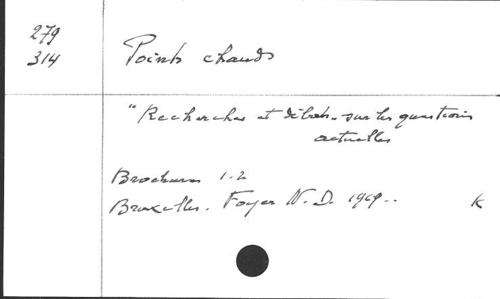 279
314
Points chauds
"Recherches et débats sur les questions
actuelles
Brochures 1-2
Bruxelles. Foyer N. D. 1969..
K